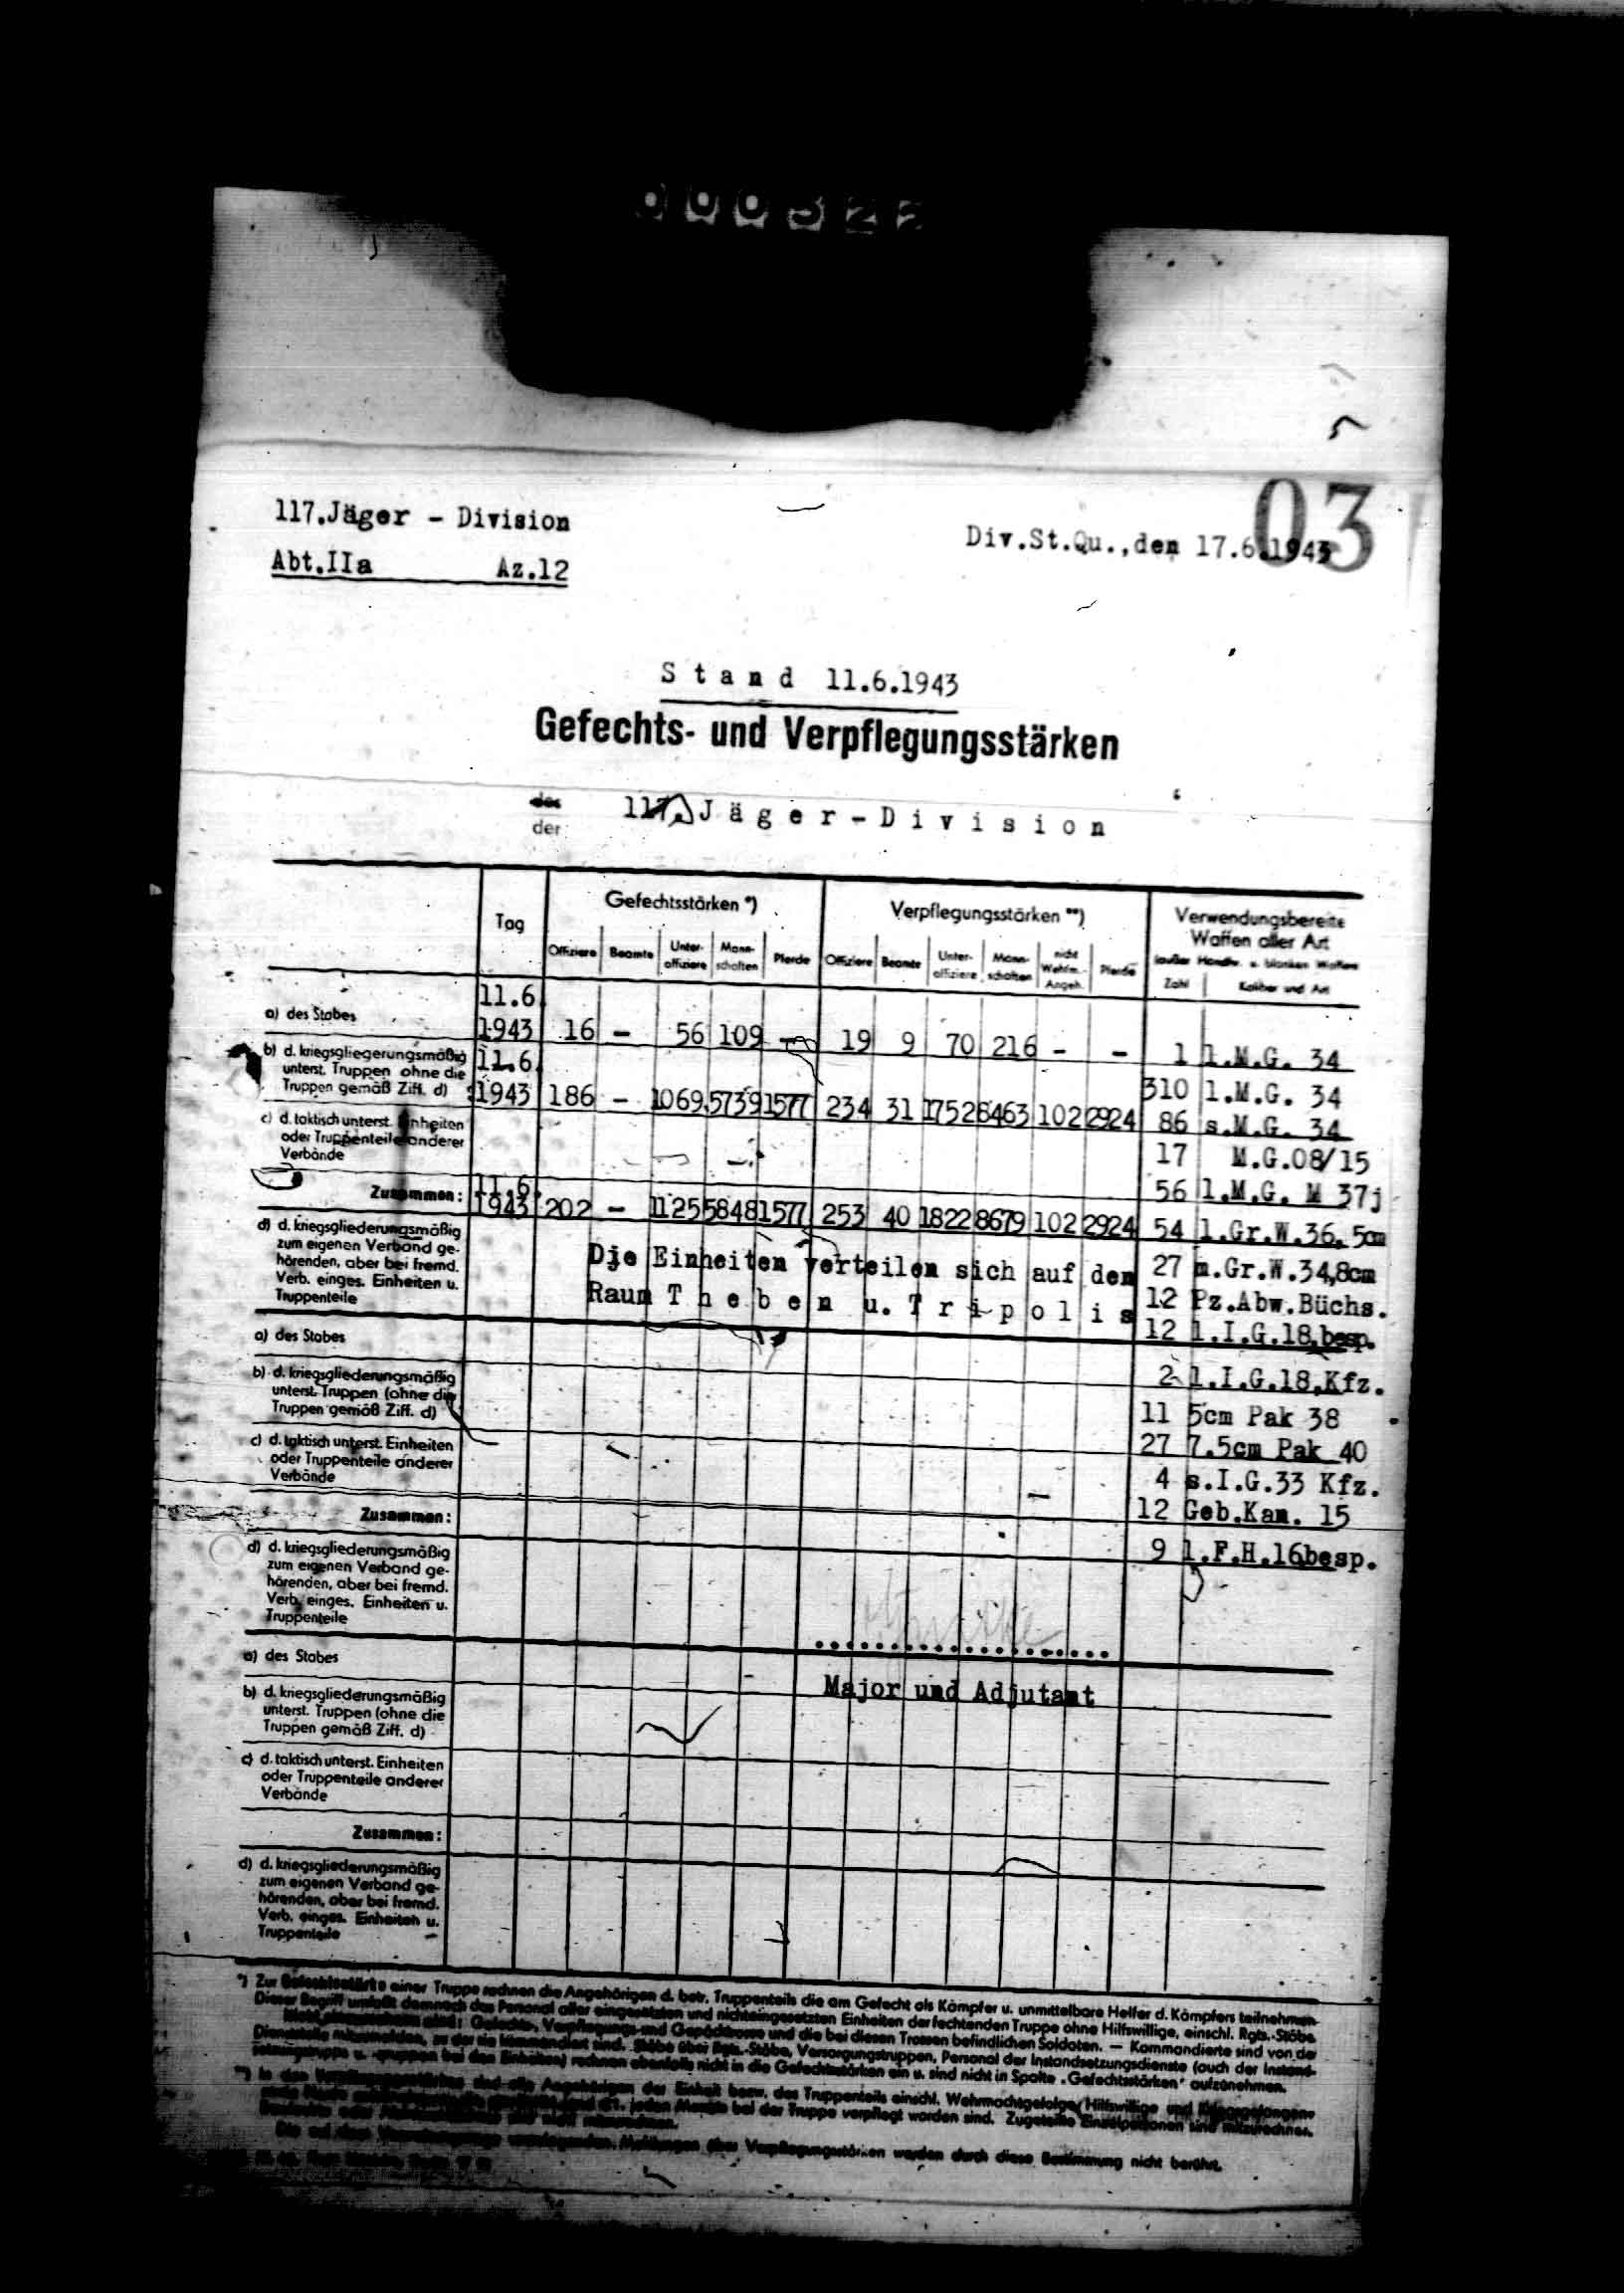 000322
03
117.Jäger - Division
Div.St.Qu.,den 17.6.1943
Abt.IIa Az.12
S t a n d 11.6.1943
Gefechts- und Verpflegungsstärken
des
der
117.J ä g e r - D i v i s i o n
Tag
Gefechtsstärken *)
Verpflegungsstärken **)
Verwendungsbereite
Waffen aller Art
(außer Handfw. u. blanken Waffen
Offiziere Beamte Unter-offiziere Mann-schaften Pferde Offiziere Beamte Unter-offiziere Mann-schaften nicht Wehrm.-Angeh. Pferde Zahl Kaliber und Art
a) des Stabes 11.6. 1943 16 - 56 109 - 19 9 70 216 - - 1 l.M.G. 34
b) d. kriegsgliegerungsmäßig
unterst. Truppen ohne die
Truppen gemäß Ziff. d)
11.6. 1943 186 - 1069 5739 1577 234 31 1752 8463 102 2924
310 l.M.G. 34
86 s.M.G. 34
c) d. taktisch unterst. Einheiten
oder Truppenteile anderer
Verbände
17 M.G.08/15
56 l.M.G. M 37j
Zusammen: 11.6. 1943 202 - 1125 5848 1577 253 40 1822 8679 102 2924
54 l.Gr.W.36, 5cm
d) d. kriegsgliederungsmäßig
zum eigenen Verband ge-
hörenden, aber bei fremd.
Verb. einges. Einheiten u.
Truppenteile
Die Einheiten verteilen sich auf den
Raum T h e b e n u. T r i p o l i s
27 m.Gr.W.34,8cm
12 Pz.Abw.Büchs.
12 l.I.G.18,besp.
a) des Stabes
2 l.I.G.18,Kfz.
b) d. kriegsgliederungsmäßig
unterst. Truppen (ohne die
Truppen gemäß Ziff. d)
11 5cm Pak 38
27 7.5cm Pak 40
c) d. taktisch unterst. Einheiten
oder Truppenteile anderer
Verbände
4 s.I.G.33 Kfz.
12 Geb.Kan. 15
Zusammen:
9 l.F.H.16besp.
d) d. kriegsgliederungsmäßig
zum eigenen Verband ge-
hörenden, aber bei fremd.
Verb. einges. Einheiten u.
Truppenteile
a) des Stabes
Major und Adjutant
b) d. kriegsgliederungsmäßig
unterst. Truppen (ohne die
Truppen gemäß Ziff. d)
c) d. taktisch unterst. Einheiten
oder Truppenteile anderer
Verbände
Zusammen:
d) d. kriegsgliederungsmäßig
zum eigenen Verband ge-
hörenden, aber bei fremd.
Verb. einges. Einheiten u.
Truppenteile
*) Zur Gefechtsstärke einer Truppe rechnen die Angehörigen d. betr. Truppenteils die am Gefecht als Kämpfer u. unmittelbare Helfer d. Kämpfers teilnehmen.
Dieser Begriff umfaßt demnach das Personal aller eingesetzten und nichteingesetzten Einheiten der fechtenden Truppe ohne Hilfswillige, einschl. Rgts.-Stäbe.
Gefechts-, Verpflegungs- und Gepäcktrosse und die bei diesen Trossen befindlichen Soldaten. — Kommandierte sind von der
Dienststelle mitzumelden, zu der sie kommandiert sind. Stäbe über Rgts.-Stäbe, Versorgungstruppen, Personal der Instandsetzungsdienste (auch der Instand-
bei den Einheiten) rechnen ebenfalls nicht in die Gefechtsstärken ein u. sind nicht in Spalte „Gefechtsstärken" aufzunehmen.
**) In den Verpflegungsstärken sind alle Angehörigen der Einheit bezw. des Truppenteils einschl. Wehrmachtgefolge, Hilfswillige und Kriegsgefangene
bei der Truppe verpflegt worden sind. Zugeteilte Einzelpersonen sind mitzurechnen.
Meldungen über Verpflegungsstärken werden durch diese Bestimmung nicht berührt.